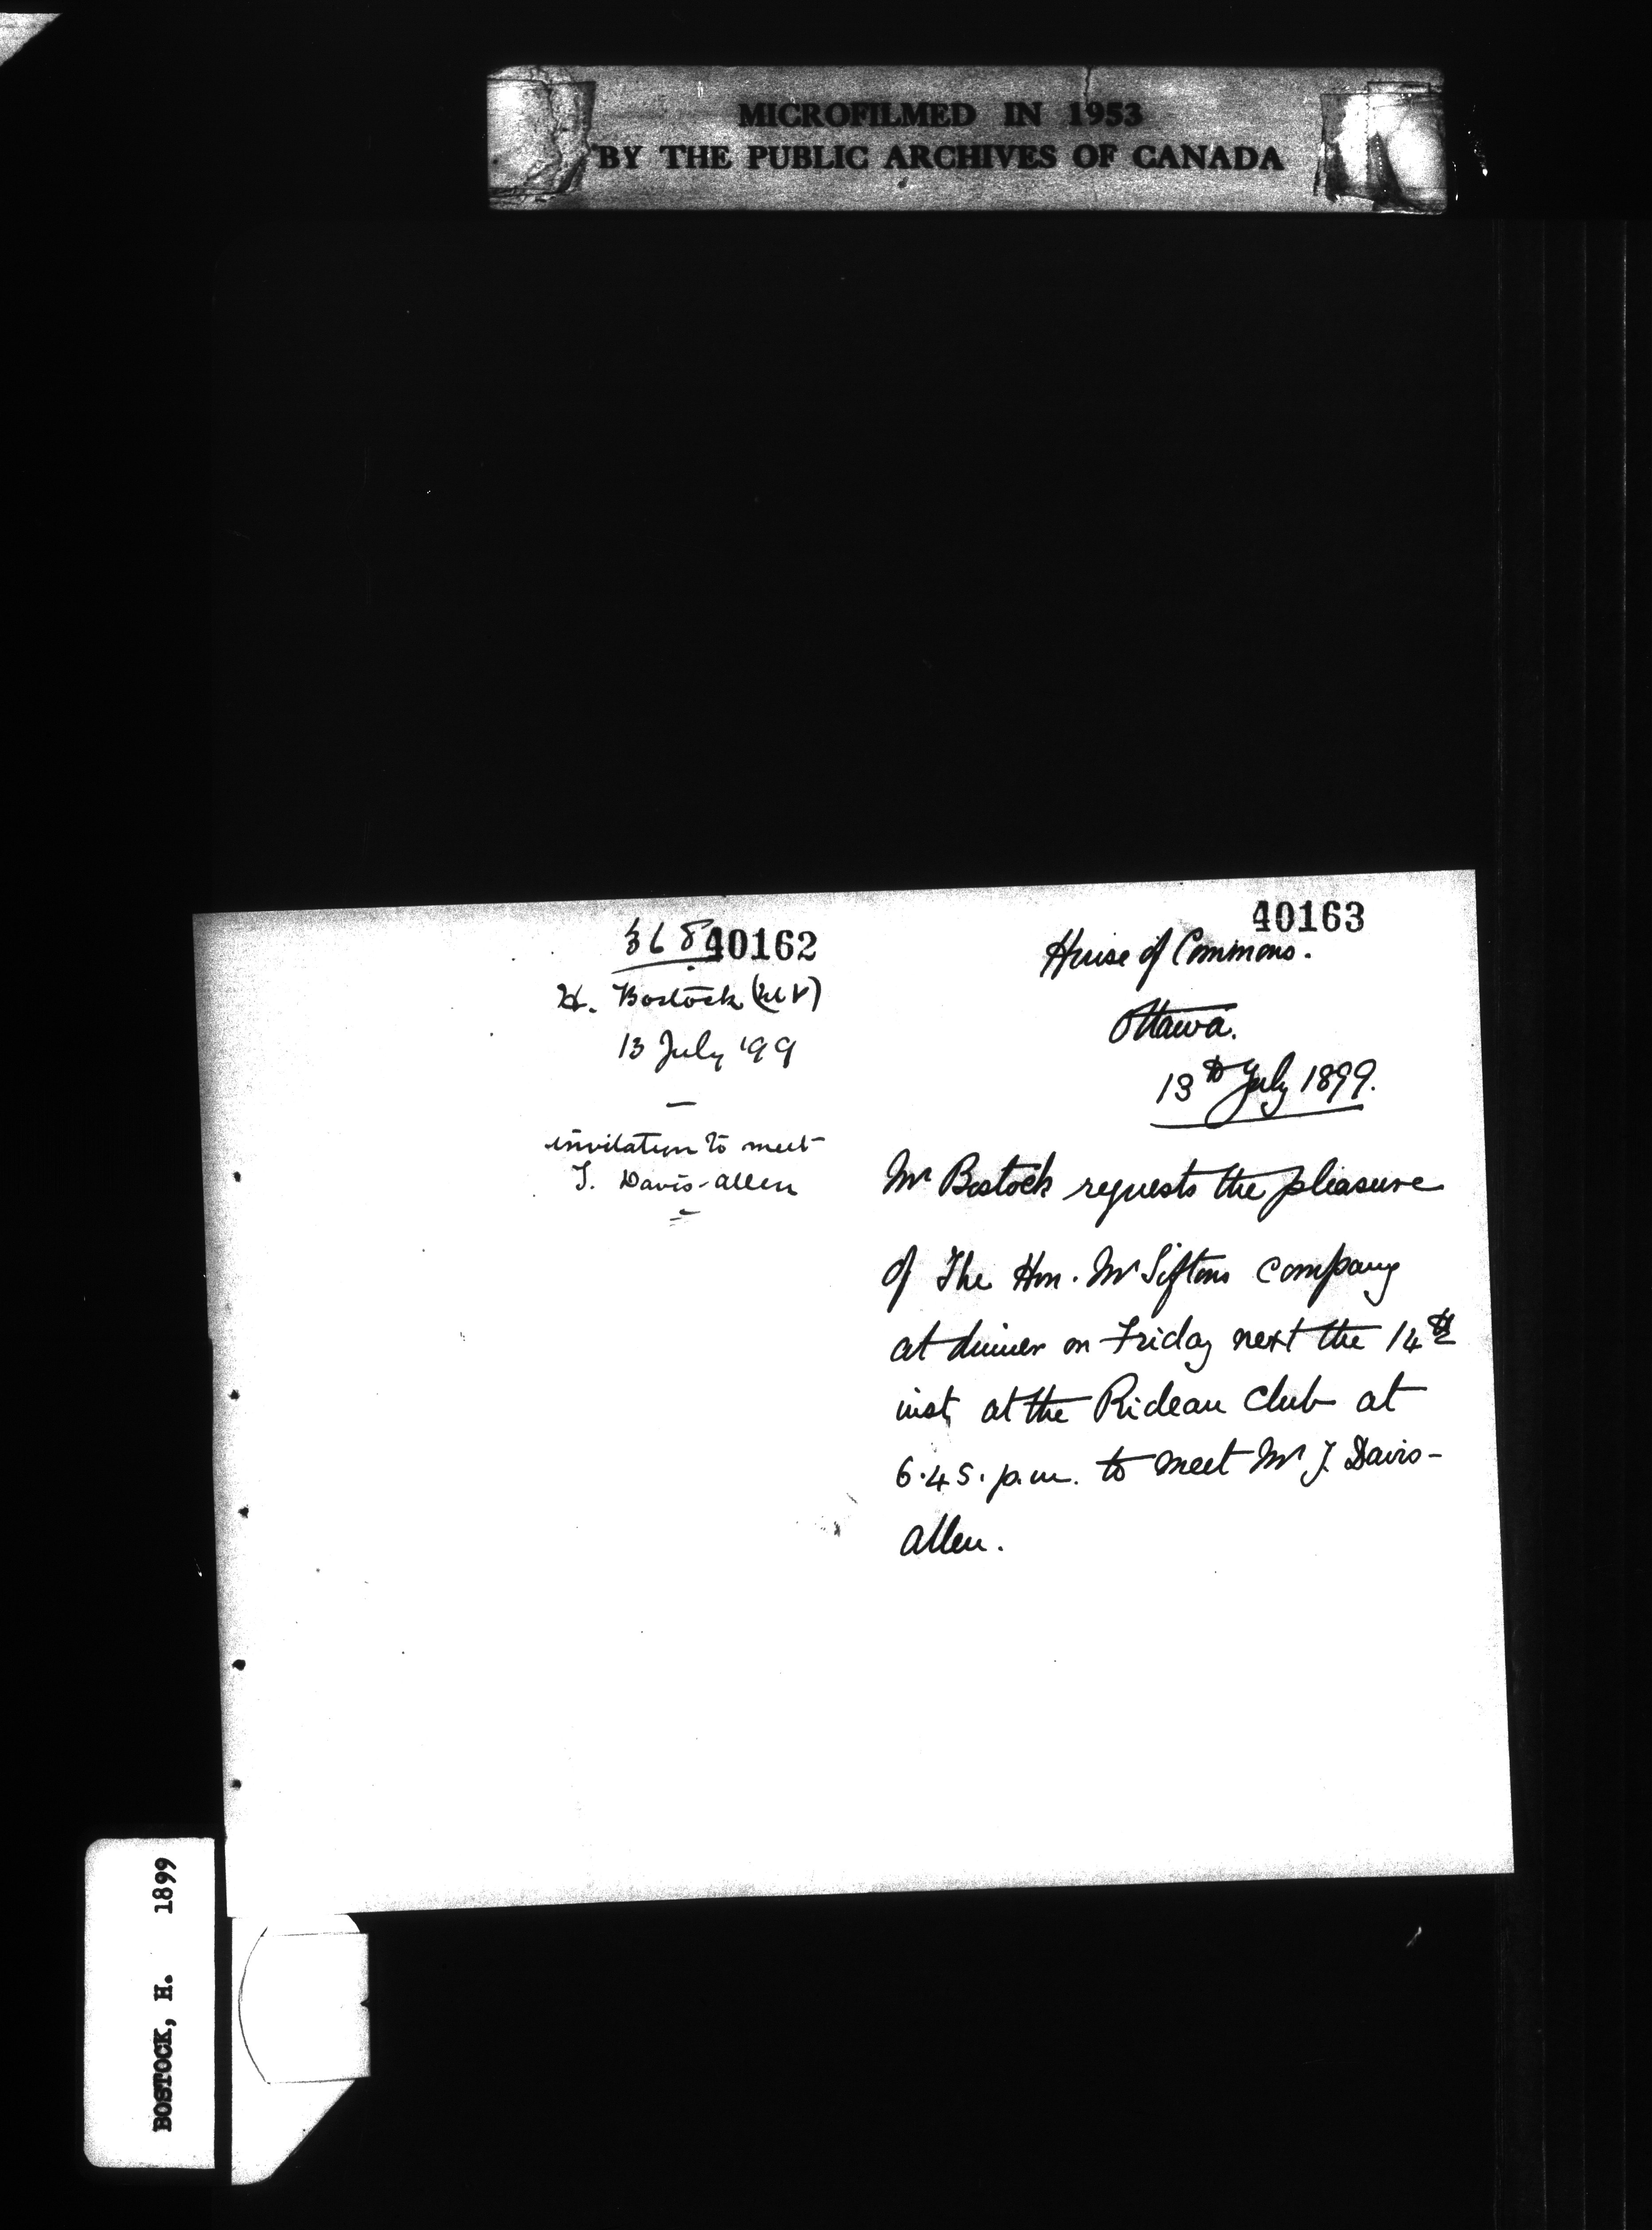 MICROFILMED IN 1953
BY THE PUBLIC ARCHIVES OF CANADA
368
40162
H. Bostock (M P)
13 July '99
invitation to meet
J. Davis-Allen
40163
House of Commons.
Ottawa.
13th July 1899.
Mr Bostock requests the pleasure
of The Hon. Mr Siftons company
at dinner on Friday next the 14th
inst, at the Rideau Club at
6.45. p.m. to meet Mr J. Davis-
Allen.
BOSTOCK, H. 1899